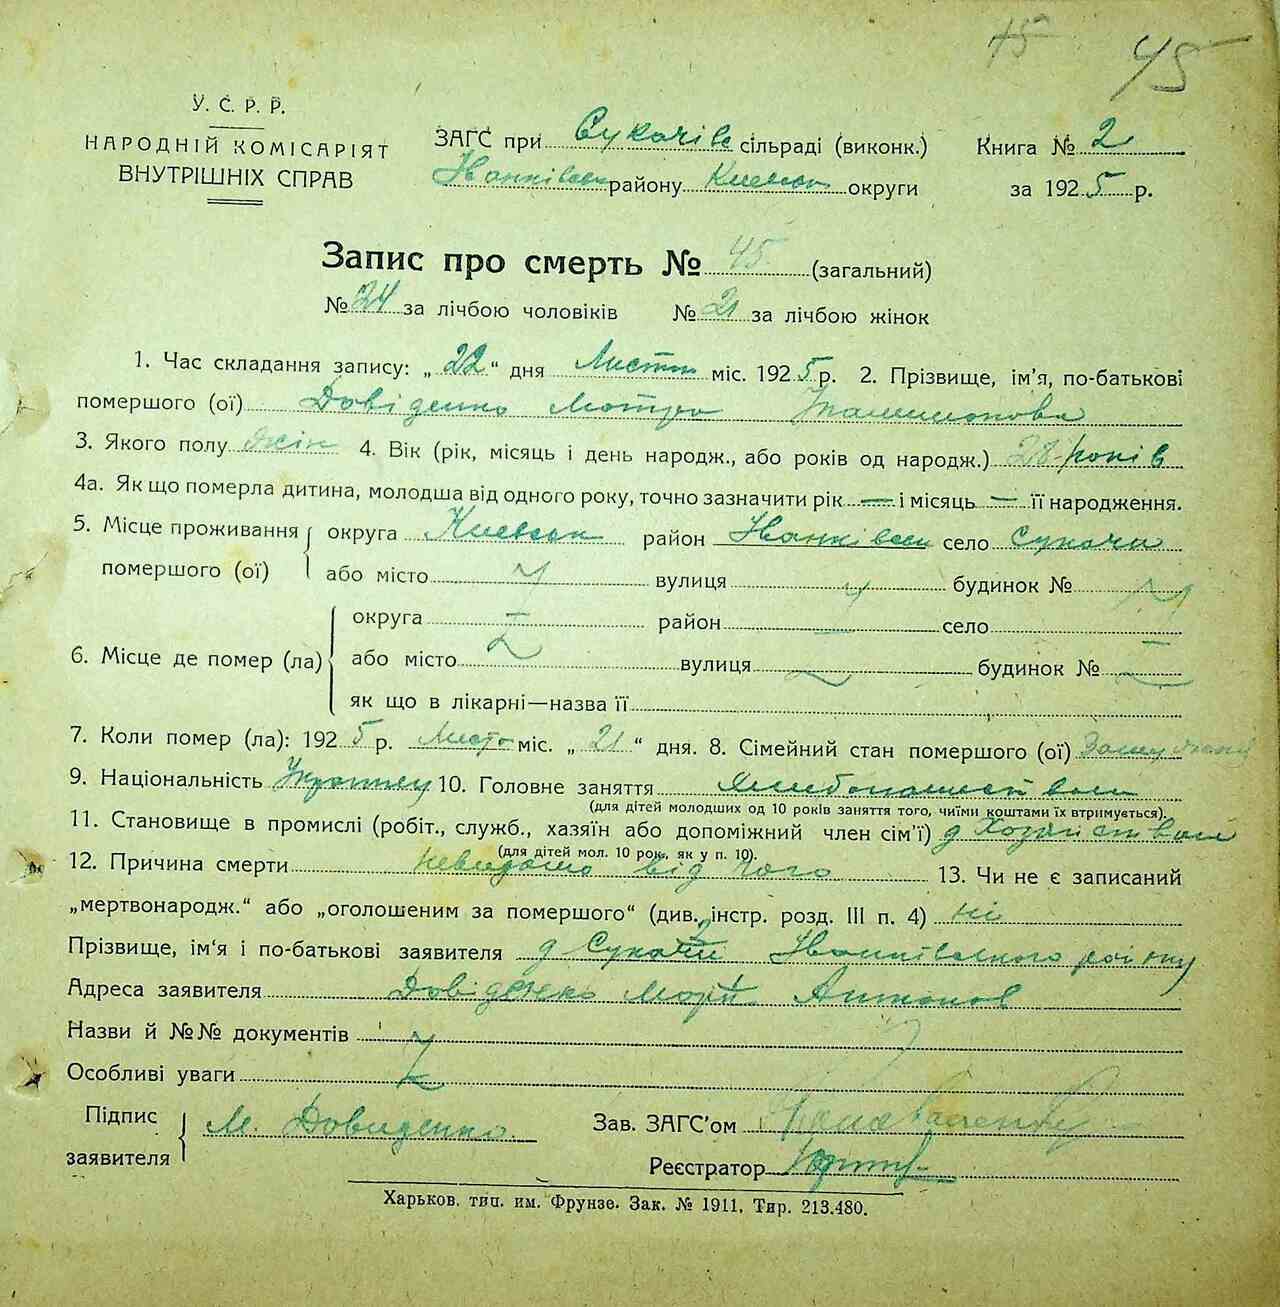 45 45
У. С. Р. Р.
НАРОДНІЙ КОМІСАРІЯТ
ВНУТРІШНІХ СПРАВ
ЗАГС при Сукачівс сільраді (виконк.)
Іванківськ району Киевськ округи
Книга № 2
за 1925 р.
Запис про смерть № 45 (загальний)
№ 24 за лічбою чоловіків № 21 за лічбою жінок
1. Час складання запису: „22“ дня Листоп міс. 1925 р. 2. Прізвище, ім’я, по-батькові
помершого (ої) Довіденко Мотря
3. Якого полу жін 4. Вік (рік, місяць і день народж., або років од народж.) 28 років
4а. Як що померла дитина, молодша від одного року, точно зазначити рік — і місяць — її народження.
5. Місце проживання помершого (ої) округа Киевськ район Іванківськ село Сукачи
або місто вулиця будинок №
6. Місце де помер (ла) округа район село
або місто вулиця будинок №
як що в лікарні—назва її
7. Коли помер (ла): 1925 р. Листо міс. „21“ дня. 8. Сімейний стан помершого (ої)
9. Національність 10. Головне заняття
(для дітей молодших од 10 років заняття того, чиїми коштами їх втримується).
11. Становище в промислі (робіт., служб., хазяїн або допоміжний член сім’ї)
(для дітей мол. 10 рок., як у п. 10).
12. Причина смерти невидомо від чого 13. Чи не є записаний
„мертвонародж.“ або „оголошеним за помершого“ (див. інстр. розд. III п. 4) ні
Прізвище, ім‘я і по-батькові заявителя Іванківського району
Адреса заявителя Довіденко Антонов
Назви й №№ документів
Особливі уваги
Підпис заявителя М. Довиденко
Зав. ЗАГС’ом
Реєстратор
Харьков. тип. им. Фрунзе. Зак. № 1911. Тир. 213.480.